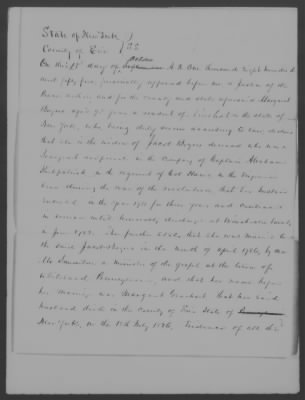 State of New York )
County of Erie ) SS
On this 15th day of October A.D. One thousand eight hundred
and fifty five, personally appeared before me a Justice of the
Peace within and for the county and state aforesaid Margaret
Rogers aged years a resident of in the state of
New York, who being duly sworn according to law, declares
that she is the widow of Jacob Rogers deceased who was a
Sergeant in the Company of Captain Abraham
Kirkpatrick in the regiment of Col. in the Virginia
line during the war of the revolution that her husband
enlisted in the year for three years and continued
in until honorably discharged at
in June 1783. She further states that she was married to
the said Jacob Rogers in the month of April 1786, by one
Mr. a minister of the gospel at the town of
Pennsylvania, and that her name before
her marriage was Margaret that her said
husband died in the County of Erie State of
New York, on the 18th July 1826, Evidence of all the